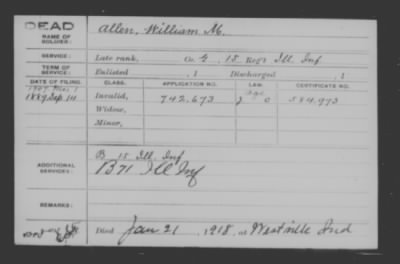 DEAD
NAME OF SOLDIER: Allen, William M.
SERVICE: Late rank, Co. G, 15 Reg't Ill. Inf
TERM OF SERVICE: Enlisted , 1 Discharged , 1
DATE OF FILING. CLASS. APPLICATION NO. LAW. CERTIFICATE NO.
1889 Sep 14 Invalid, 742.673 584.973
Widow,
Minor,
B 15 Ill. Inf
ADDITIONAL SERVICES: B 71 Ill Inf
REMARKS:
Died Jan 21, 1918, at Westville Ind